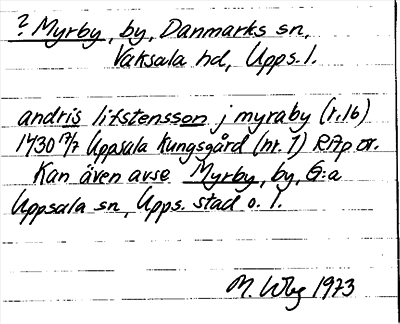 ? Myrby, by, Danmarks sn,
Vaksala hd, Upps. l.
andris litstensson j myraby (r.16)
1430 17/7 Uppsala Kungsgård (nr. 1) RAp or.
Kan även avse Myrby, by, G:a
Uppsala sn, Upps. stad o. l.
M. Wbg 1973